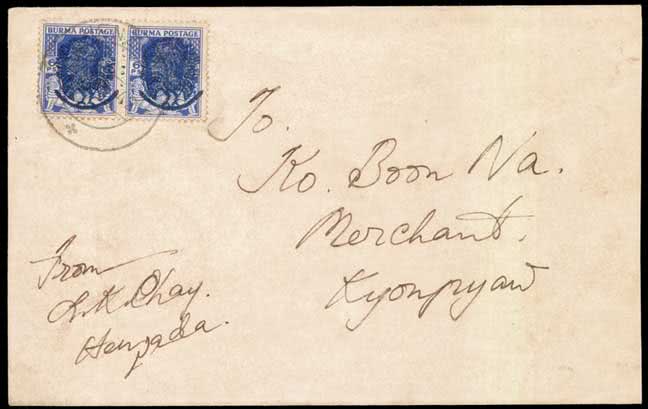 BURMA POSTAGE BURMA POSTAGE
To.
Ko. Boon Na.
Merchant.
Kyonpyaw
From
L.K.Chay.
Henzada.